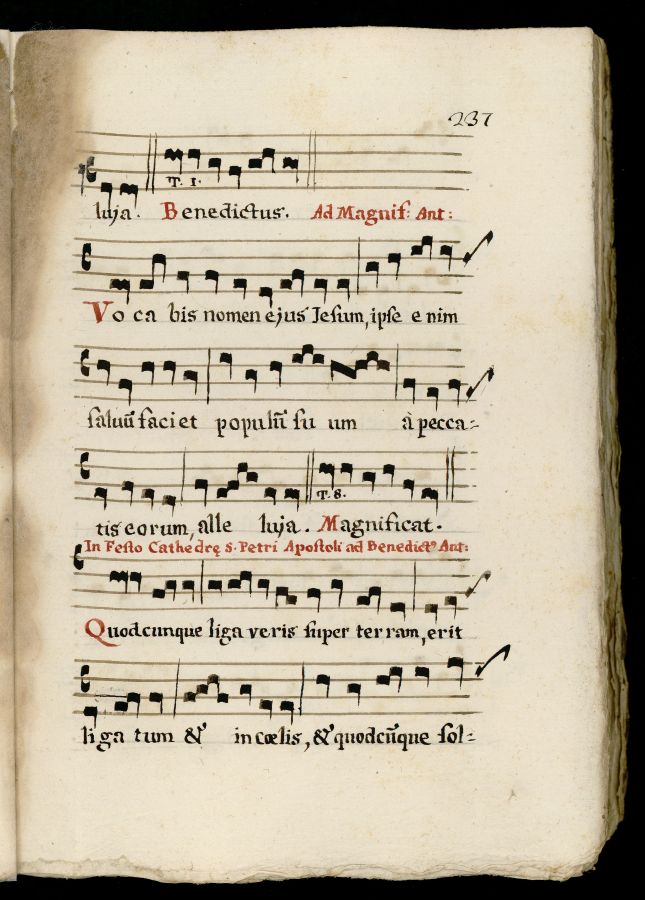 237
T. 1.
luja. Benedictus. Ad Magnif: Ant:
Vo ca bis nomen ejus Jesum, ipse e nim
saluũ faciet populũ su um à pecca=
T. 8.
tis eorum, alle luja. Magnificat.
In Festo Cathedrę S. Petri Apostoli ad Benedict⁹ Ant:
Quodcunque liga veris super terram, erit
liga tum & in cœlis, & quodcũque sol=